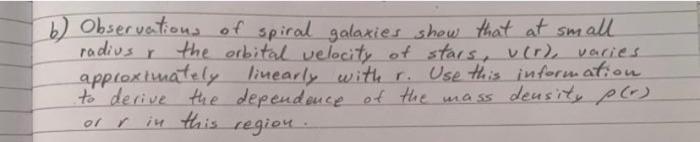 b) Observations of spiral galaxies show that at small
radius r the orbital velocity of stars, v(r), varies
approximately linearly with r. Use this information
to derive the dependence of the mass density ρ(r)
or r in this region.